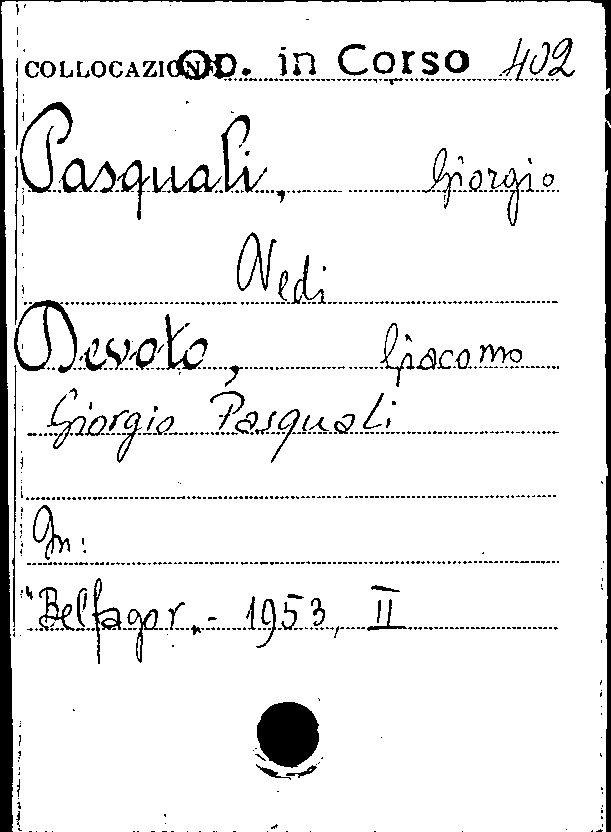 COLLOCAZIONE Op. in Corso 402
Pasquali, Giorgio
Vedi
Devoto, Giacomo
Giorgio Pasquali
In:
"Belfagor„- 1953, II